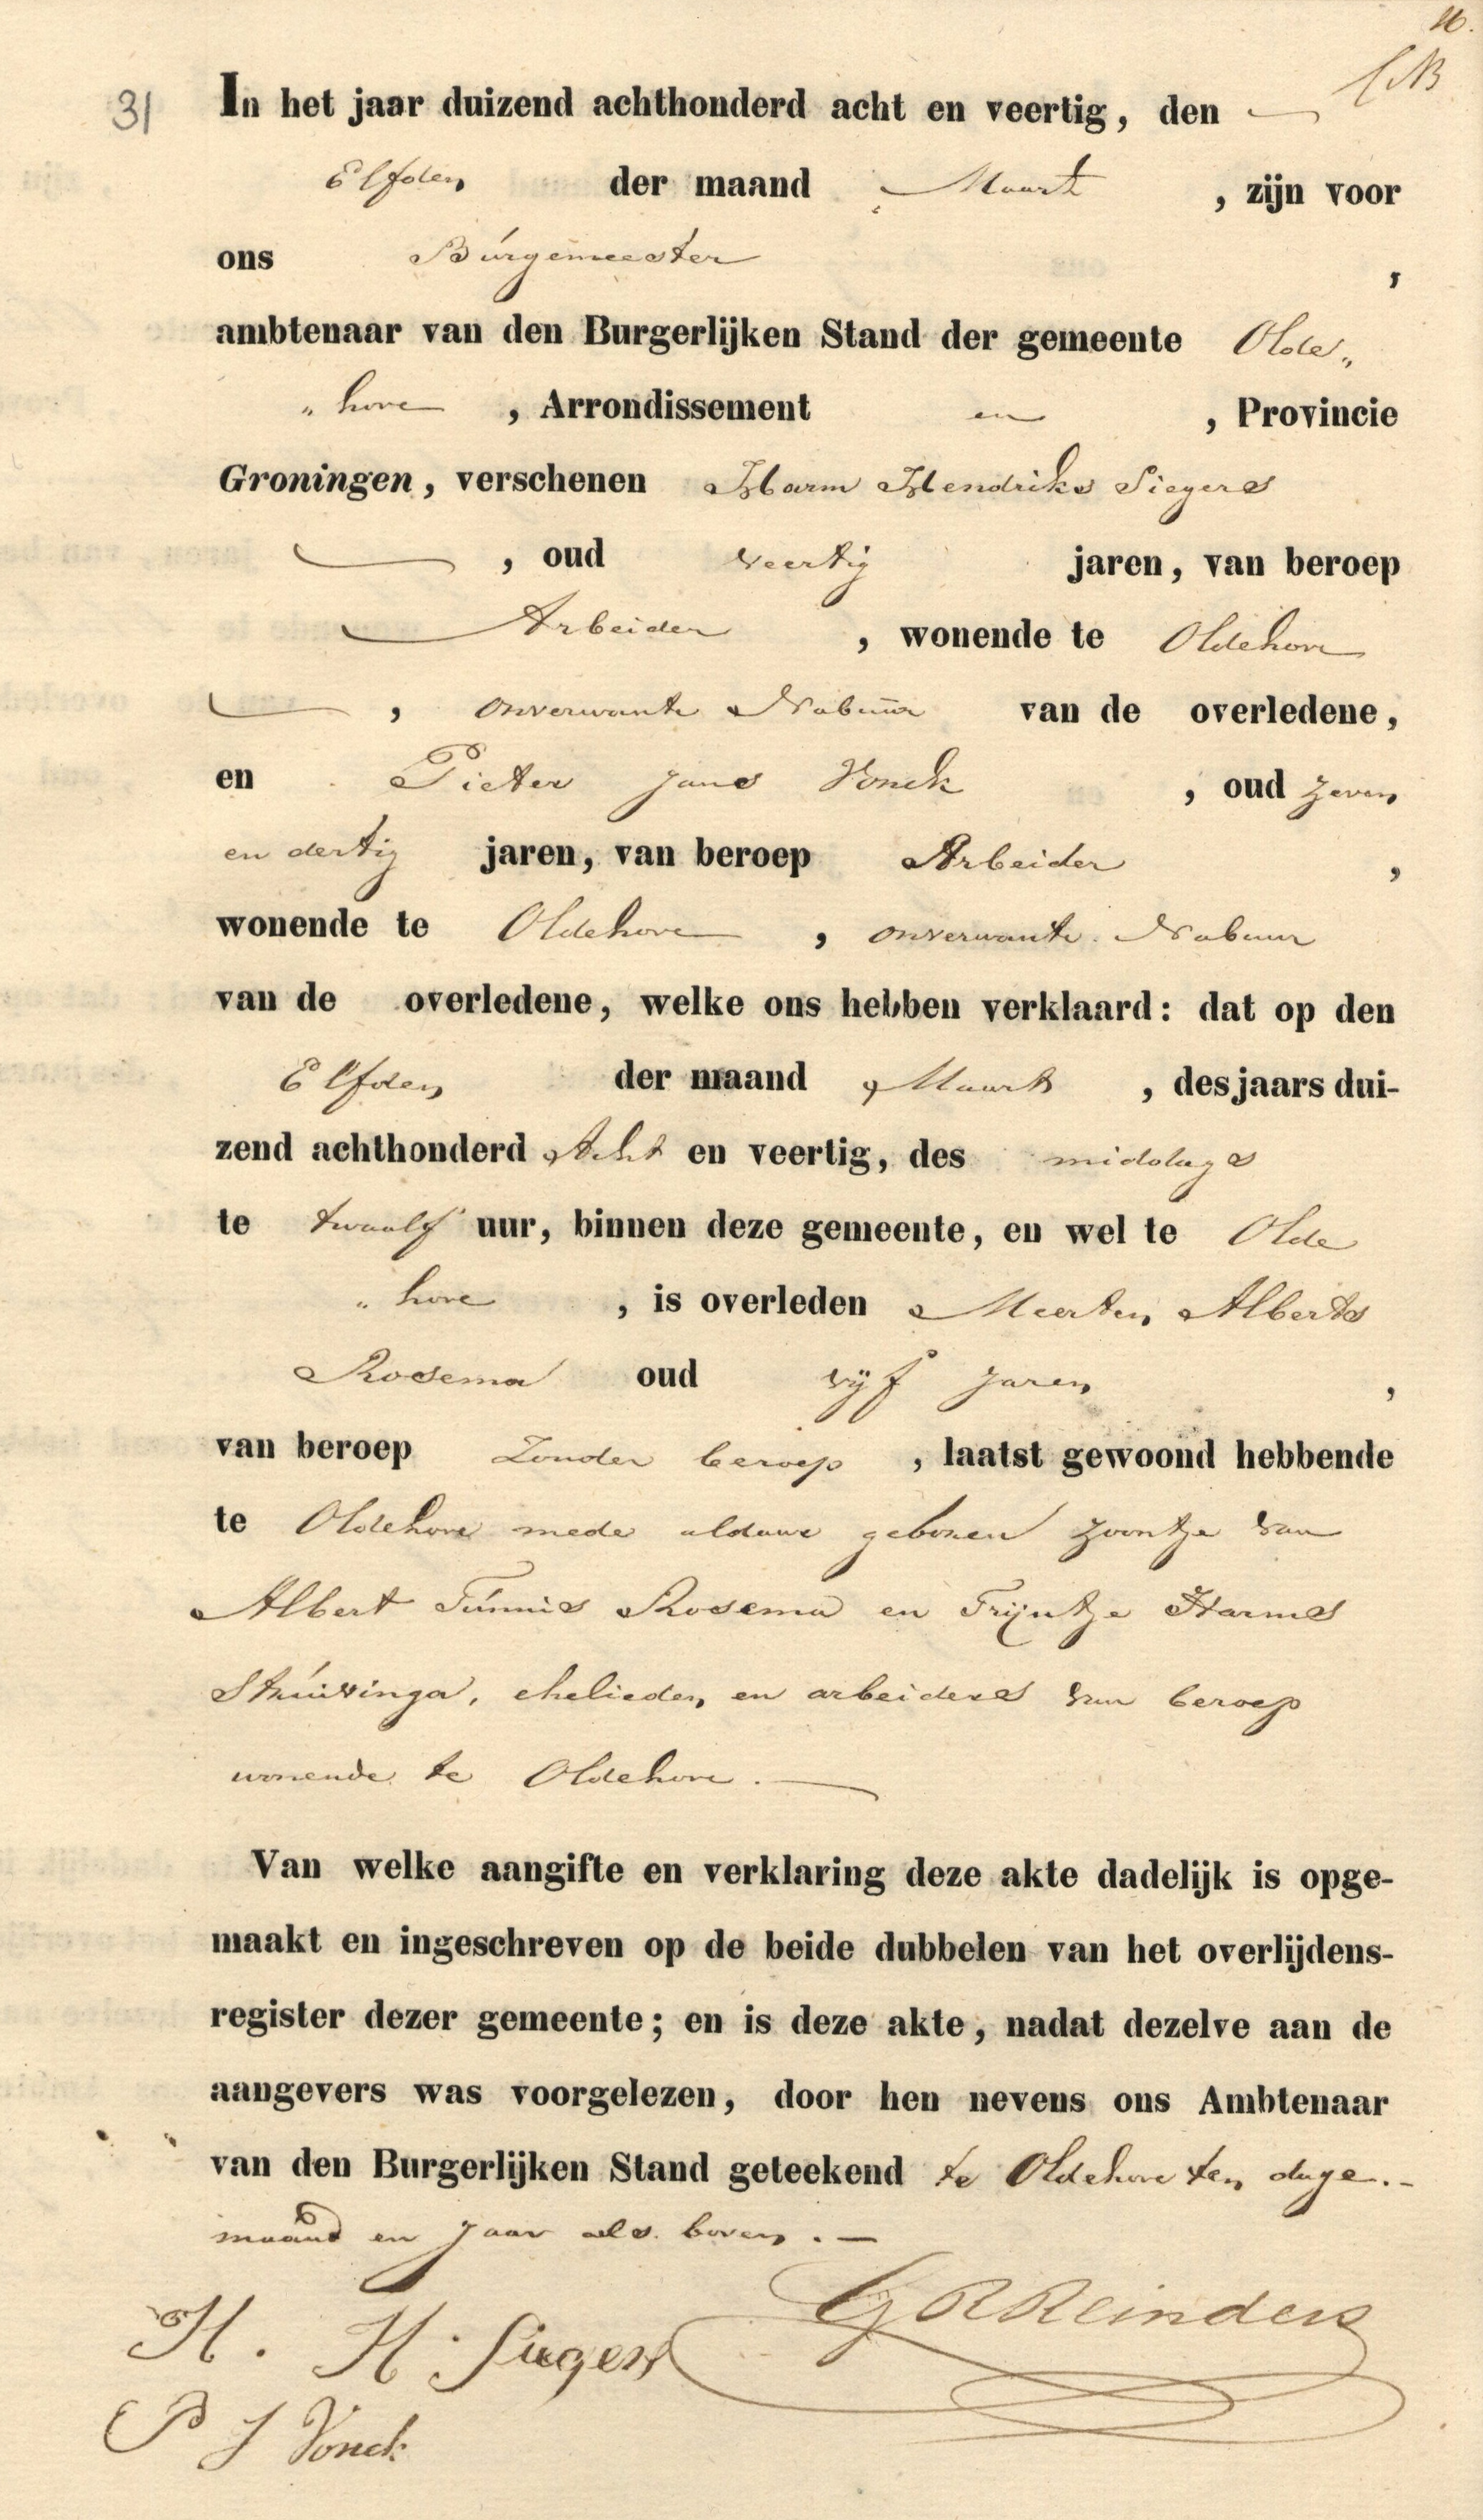 16.
31 In het jaar duizend achthonderd acht en veertig, den
Elfden der maand Maart, zijn voor
ons Burgemeester,
ambtenaar van den Burgerlijken Stand der gemeente Olde„
„hove, Arrondissement en, Provincie
Groningen, verschenen Harm Hendriks Siegers
, oud veertig jaren, van beroep
Arbeider, wonende te Oldehove
, onverwante Nabuur van de overledene,
en Pieter Jans Vonck, oud zeven
en dertig jaren, van beroep Arbeider,
wonende te Oldehove, onverwante Nabuur
van de overledene, welke ons hebben verklaard: dat op den
Elfden der maand Maart, des jaars dui-
zend achthonderd Acht en veertig, des middags
te twaalf uur, binnen deze gemeente, en wel te Olde
„hove, is overleden Meerten Alberts
Rosema oud vijf jaren,
van beroep Zonder beroep, laatst gewoond hebbende
te Oldehove mede aldaar geboren zoontje van
Albert Tunnis Rosema en Trijntje Harms
Stuivinga, ehelieden en arbeiders van beroep
wonende te Oldehove.
Van welke aangifte en verklaring deze akte dadelijk is opge-
maakt en ingeschreven op de beide dubbelen van het overlijdens-
register dezer gemeente; en is deze akte, nadat dezelve aan de
aangevers was voorgelezen, door hen nevens ons Ambtenaar
van den Burgerlijken Stand geteekend te Oldehove ten dage.-
maand en jaar als boven.-
G R Reinders
H. H. Siegers
P J Vonck